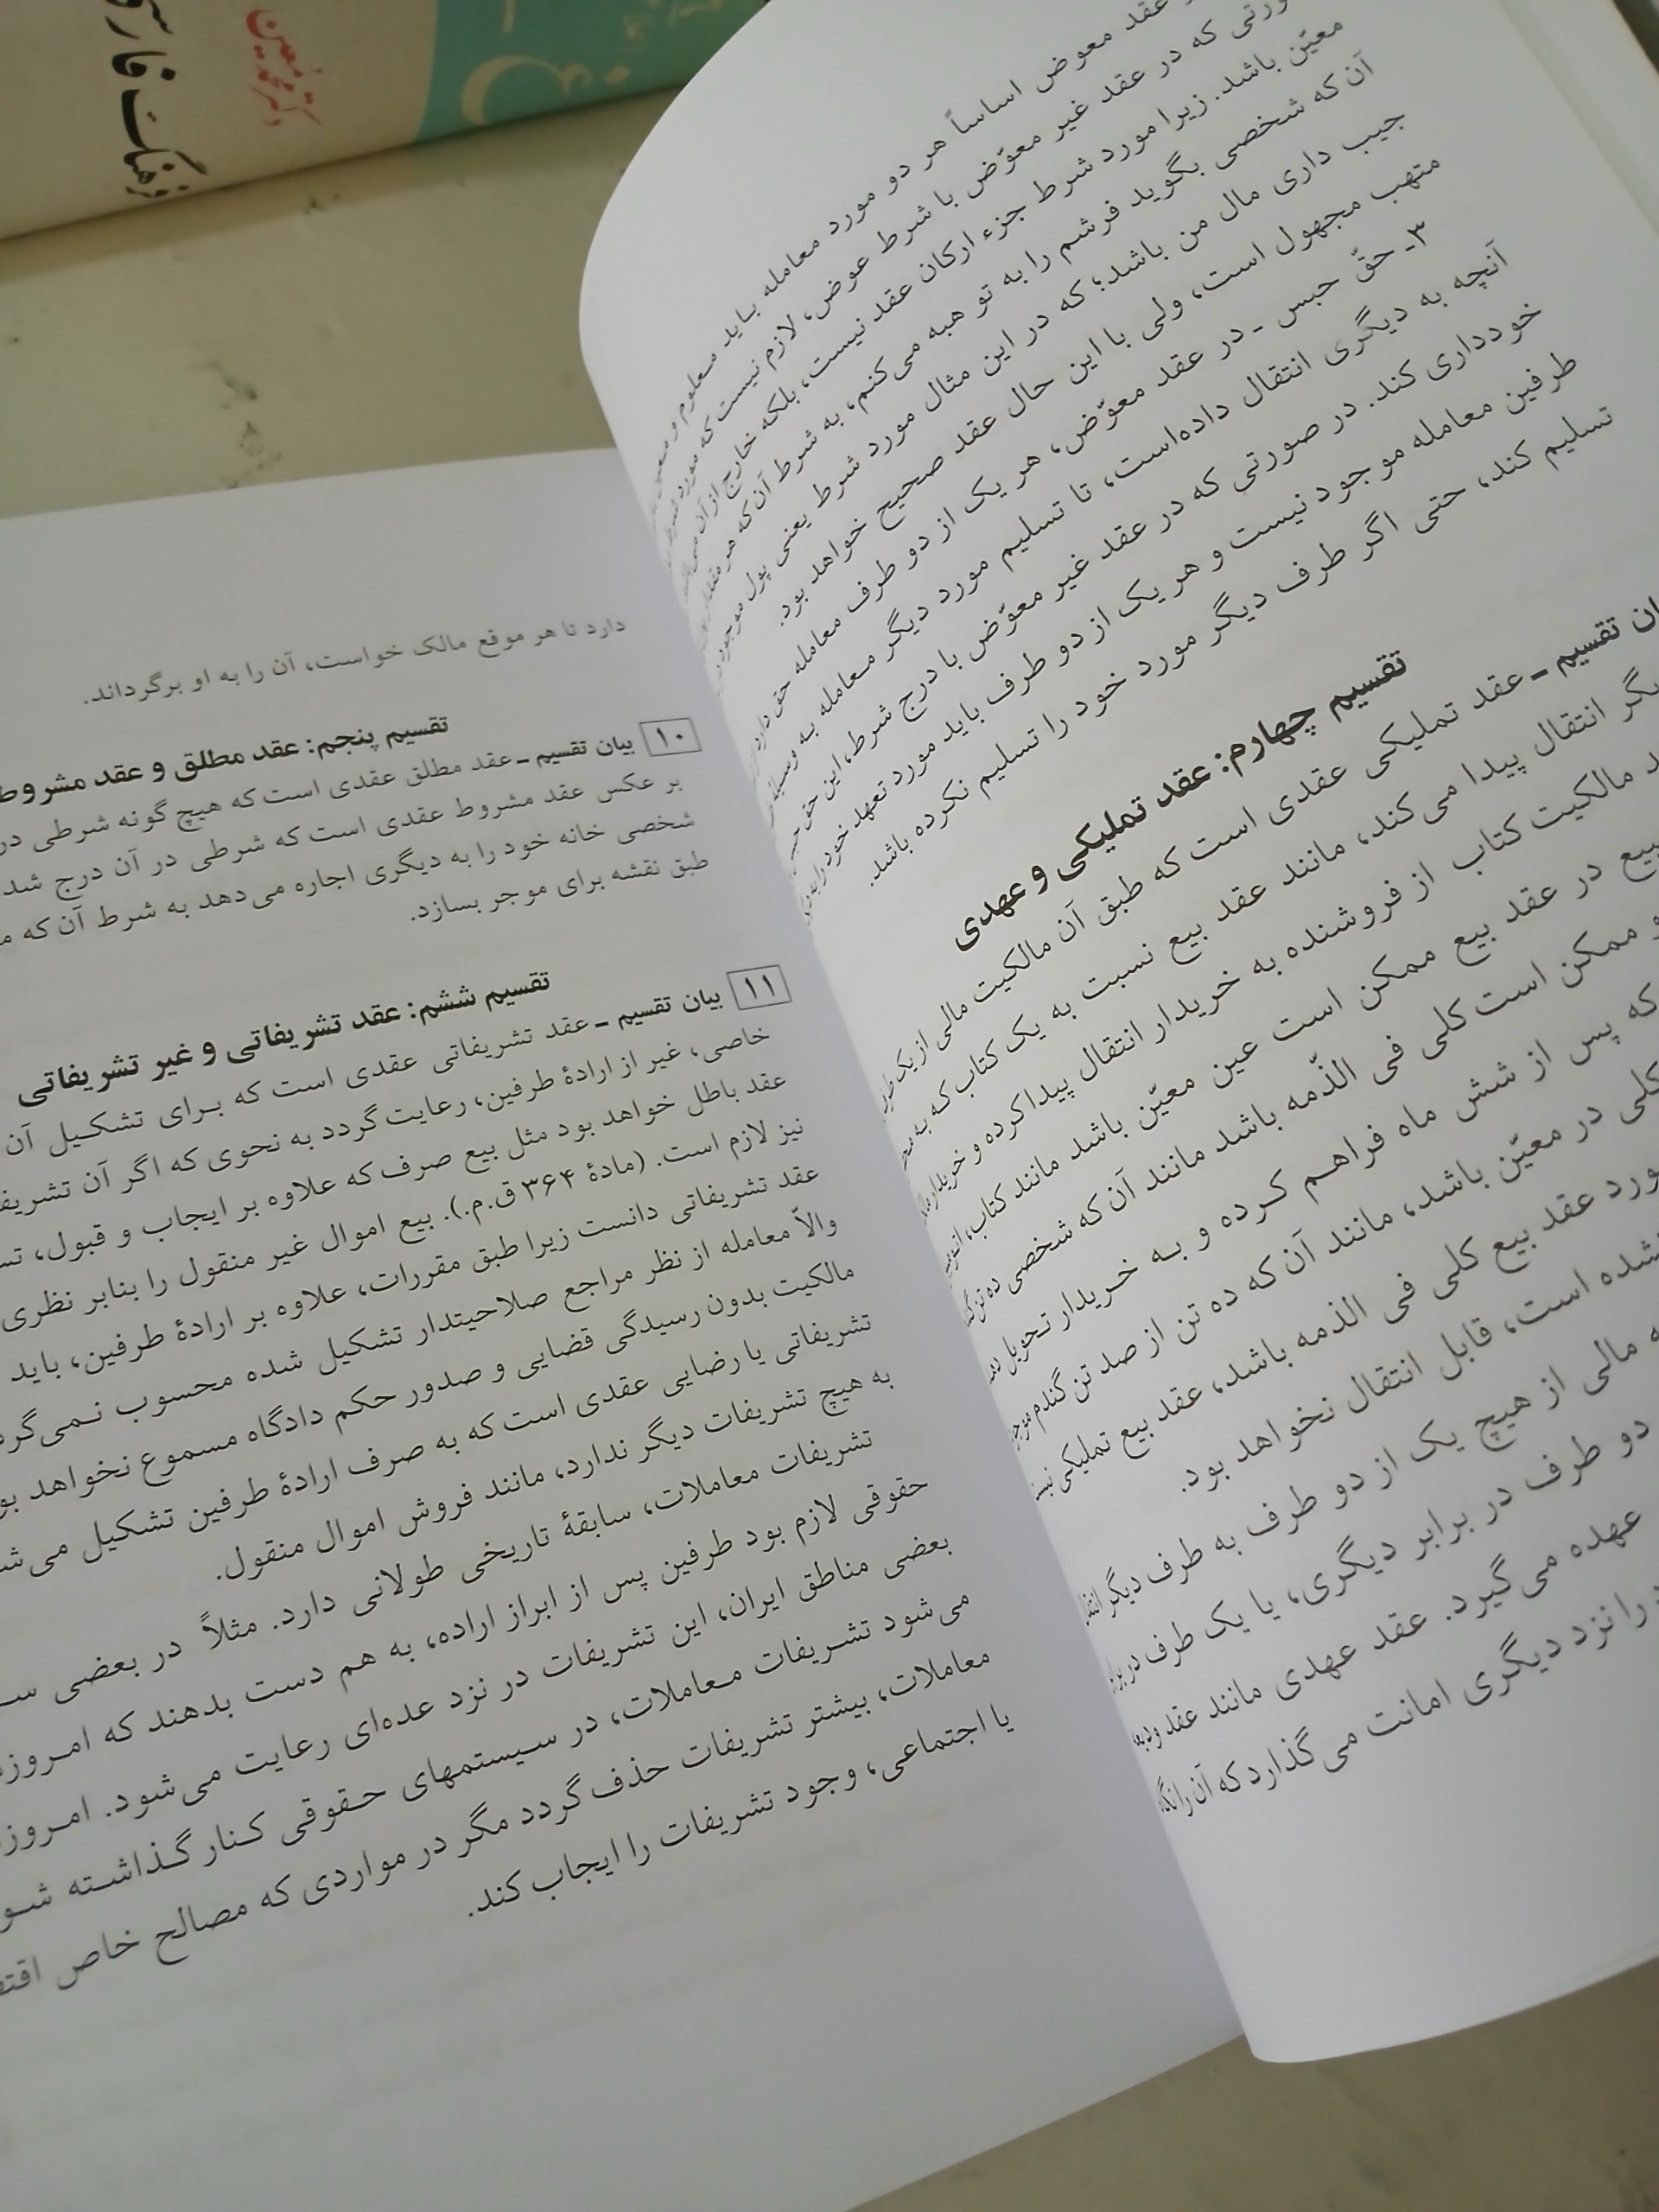 فرهنگ فارسی
دکتر محمد معین
عقد معوض اساساً هر دو مورد معامله باید معلوم و معین
که در عقد غیر معوّض با شرط عوض، لازم نیست که مورد شرط
معیّن باشد. زیرا مورد شرط جزء ارکان عقد نیست، بلکه خارج از آن
آن که شخصی بگوید فرشم را به تو هبه می‌کنم، به شرط آن که هر مقدار
جیب داری مال من باشد؛ که در این مثال مورد شرط یعنی پول موجود
متهب مجهول است، ولی با این حال عقد صحیح خواهد بود.
۳ـ حقّ حبس ـ در عقد معوّض، هر یک از دو طرف معامله حق دارد
آنچه به دیگری انتقال داده‌است، تا تسلیم مورد دیگر معامله به وسیله
خودداری کند. در صورتی که در عقد غیر معوّض با درج شرط، این حق حبس
طرفین معامله موجود نیست و هر یک از دو طرف باید مورد تعهد خود را
تسلیم کند، حتی اگر طرف دیگر مورد خود را تسلیم نکرده باشد.
تقسیم چهارم: عقد تملیکی و عهدی
تقسیم ـ عقد تملیکی عقدی است که طبق آن مالکیت مالی از یک طرف
انتقال پیدا می‌کند، مانند عقد بیع نسبت به یک کتاب که به
مالکیت کتاب از فروشنده به خریدار انتقال پیدا کرده و خریدار
بیع در عقد بیع ممکن است عین معیّن باشد مانند کتاب،
و ممکن است کلی فی الذّمه باشد مانند آن که شخصی ده تن
که پس از شش ماه فراهم کرده و به خریدار تحویل
کلی در معیّن باشد، مانند آن که ده تن از صد تن گندم
مورد عقد بیع کلی فی الذمه باشد، عقد بیع تملیکی
شده است، قابل انتقال نخواهد بود.
مالی از هیچ یک از دو طرف به طرف دیگر
دو طرف در برابر دیگری، یا یک طرف در برابر
عهده می‌گیرد. عقد عهدی مانند عقد ودیعه
را نزد دیگری امانت می‌گذارد که آن را
دارد تا هر موقع مالک خواست، آن را به او برگرداند.
تقسیم پنجم: عقد مطلق و عقد مشروط
۱۰ بیان تقسیم ـ عقد مطلق عقدی است که هیچ گونه شرطی در
بر عکس عقد مشروط عقدی است که شرطی در آن درج شد
شخصی خانه خود را به دیگری اجاره می‌دهد به شرط آن که
طبق نقشه برای موجر بسازد.
تقسیم ششم: عقد تشریفاتی و غیر تشریفاتی
۱۱ بیان تقسیم ـ عقد تشریفاتی عقدی است که برای تشکیل آن
خاصی، غیر از ارادهٔ طرفین، رعایت گردد به نحوی که اگر آن
عقد باطل خواهد بود مثل بیع صرف که علاوه بر ایجاب و قبول،
نیز لازم است. (مادهٔ ۳۶۴ ق.م.). بیع اموال غیر منقول را بنابر نظری
عقد تشریفاتی دانست زیرا طبق مقررات، علاوه بر ارادهٔ طرفین، باید
والاّ معامله از نظر مراجع صلاحیتدار تشکیل شده محسوب
مالکیت بدون رسیدگی قضایی و صدور حکم دادگاه مسموع نخواهد
تشریفاتی یا رضایی عقدی است که به صرف ارادهٔ طرفین تشکیل
به هیچ تشریفات دیگر ندارد، مانند فروش اموال منقول.
تشریفات معاملات، سابقهٔ تاریخی طولانی دارد. مثلاً در بعضی
حقوقی لازم بود طرفین پس از ابراز اراده، به هم دست بدهند که
بعضی مناطق ایران، این تشریفات در نزد عده‌ای رعایت می‌شود.
می‌شود تشریفات معاملات، در سیستمهای حقوقی کنار گذاشته
معاملات، بیشتر تشریفات حذف گردد مگر در مواردی که مصالح خاص
یا اجتماعی، وجود تشریفات را ایجاب کند.